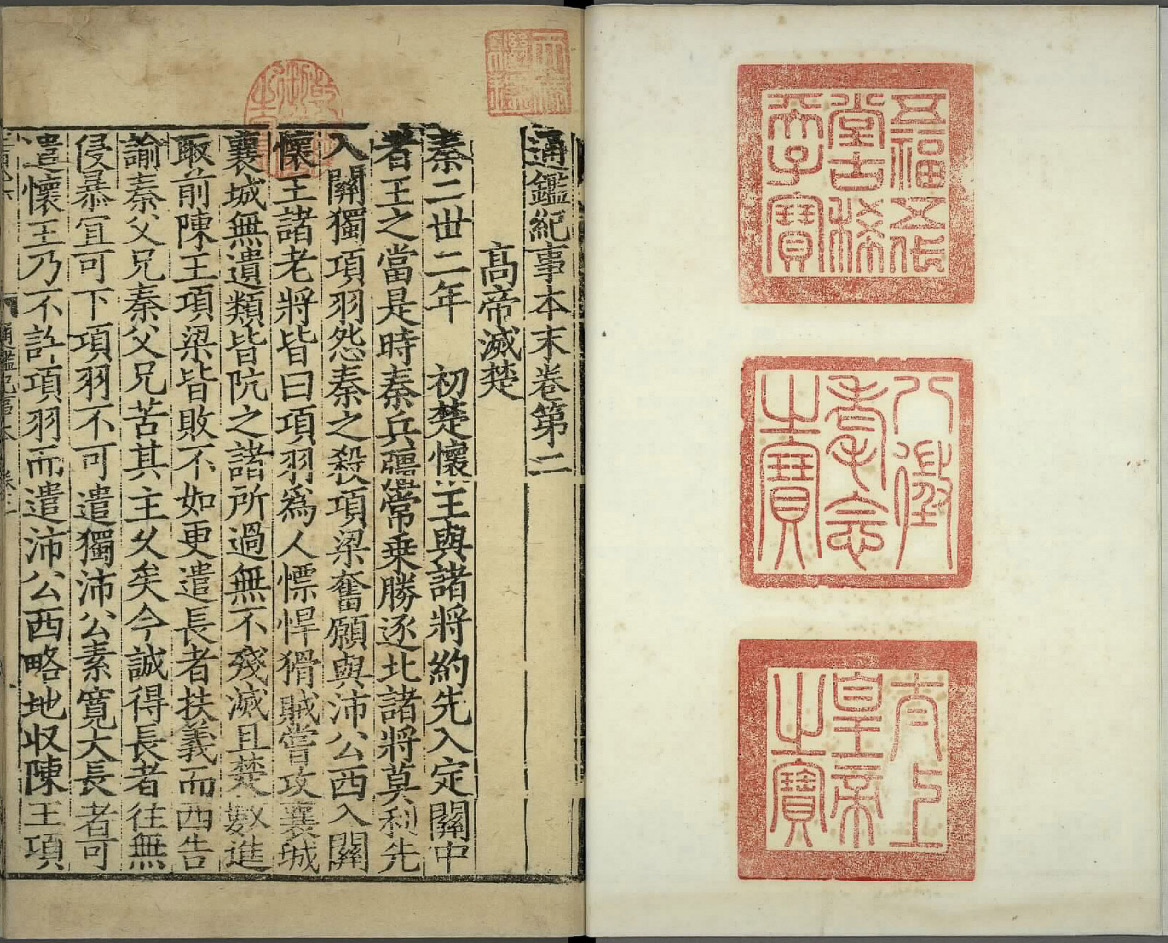 五福五代
堂古稀
天子寶
八徵
耄念
之寶
太上
皇帝
之寶
天祿
繼鑑
乾隆
御覽
之寶
通鑑紀事本末卷第二
高帝滅楚
秦二世二年 初楚懷王與諸將約先入定關中
者王之當是時秦兵彊常乗勝逐北諸將莫利先
入關獨項羽怨秦之殺項梁奮願與沛公西入關
懷王諸老將皆曰項羽為人慓悍猾賊嘗攻襄城
襄城無遺類皆阬之諸所過無不殘滅且楚數進
取前陳王項梁皆敗不如更遣長者扶義而西告
諭秦父兄秦父兄苦其主乆矣今誠得長者往無
侵暴宜可下項羽不可遣獨沛公素寛大長者可
遣懷王乃不許項羽而遣沛公西略地収陳王項